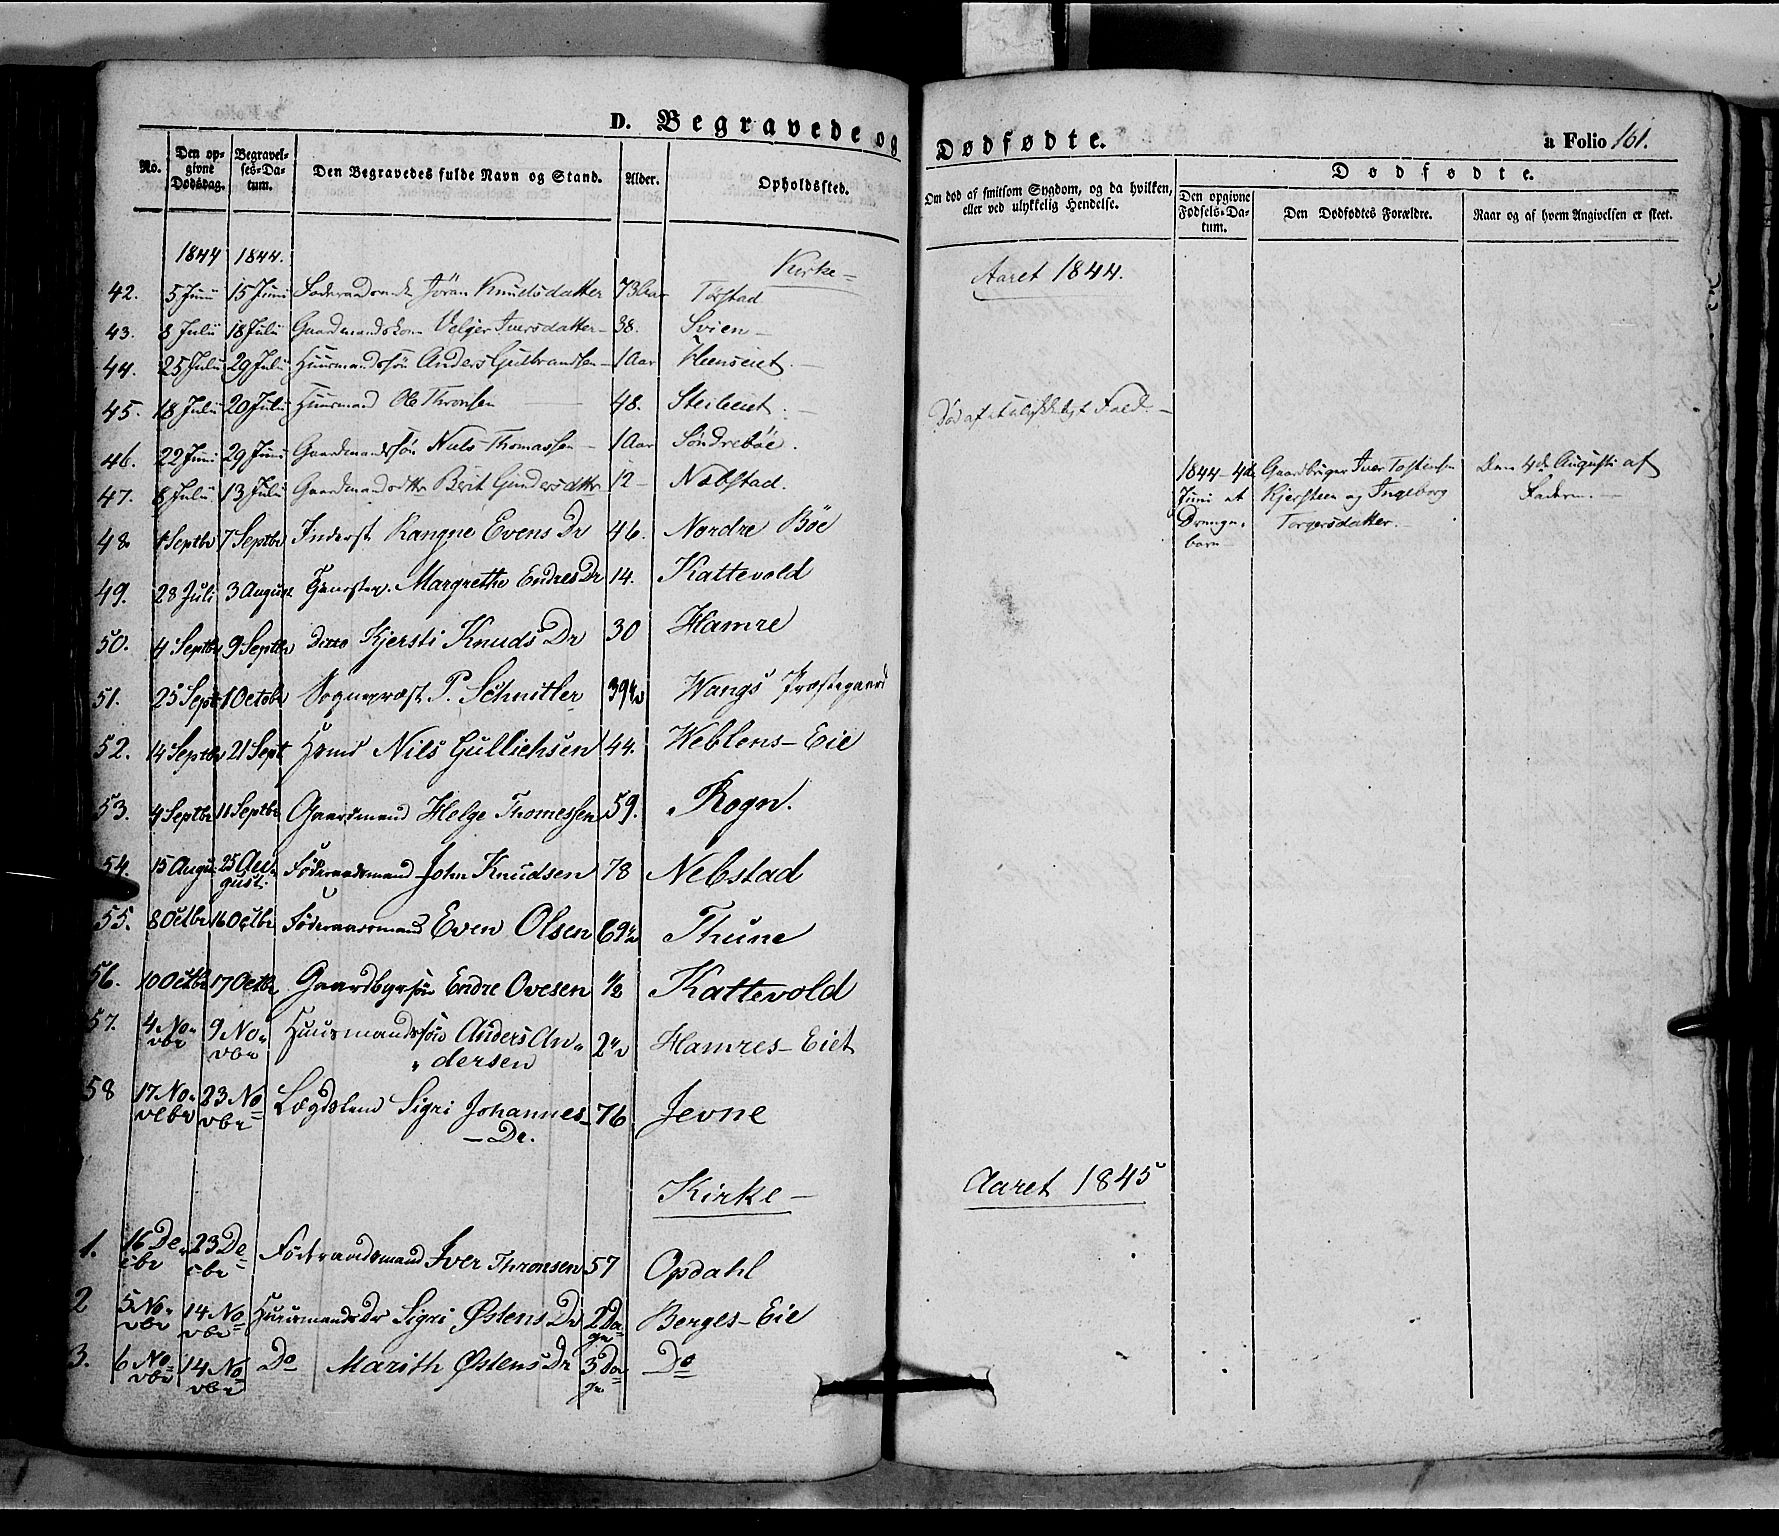 D. Begravede og
Dødfødte.
a Folio 161.
No.
Den opgivne Dødsdag.
Begravelses-Datum.
Den Begravedes fulde Navn og Stand.
Alder.
Opholdssted.
Om død af smitsom Sygdom, og da hvilken, eller ved ulykkelig Hendelse.
Dødfødte.
Den opgivne Fødsels-Datum.
Den Dødfødtes Forældre.
Naar og af hvem Angivelsen er skeet.
1844 1844.
Kirke-
Aaret 1844.
42. 5 Juni 15 Juni Jöran Knudsdatter 73 Aar Torstad
43. 8 Julii 18 Julii Gaardmandskone Iversdatter 38. Svien
44. 25 Julii 29 Julii Huusmandssön Anders Gulbrandsen 1 Aar
45. 18 Julii 20 Julii Huusmand Ole Thronsen 48.
Død af et ulykkeligt Fald.
46. 22 Juni 29 Juni Gaardmandssön Niels Thomassen 1 Aar Söndreböe.
47. 8 Julii 13 Julii Berit Gundersdttr 12 Nebstad.
1844 - 4de Juni et Drenge-barn
Gaardbruger Iver Tostensen Kjersteen og Ingeborg Torgersdatter.
Den 4de Augusti af Faderen.
48. 1 Septbr 7 Septbr Inderst Rangne Evens Dr 46. Nordre Böe
49. 28 Juli 3 August Margrethe Endres Dr 14. Kattevold
50. 4 Septbr 9 Septbr Ditto Kjersti Knuds Dr 30 Hamre
51. 25 Sept 1 Octobr Sognepræst P. Schnitler 39 Wangs Præstegaard
52. 14 Septbr 21 Sept Hsmd Nils Gullichsen 44. Weblens-Eie
53. 4 Septbr 11 Septbr Gaardmand Helge Thomessen 59. Rogn.
54. 15 Augu 25 Augusti Föderaadsmand John Knudsen 78 Nebstad
55. 8 Octbr 16 Octbr Föderaadsmand Even Olsen 69 Thune
56. 10 Octbr 17 Octbr Gaardbrsön Endre Ovesen 1/2 Kattevold
57. 4 Novbr 9 Novbr Huusmandssön Anders An-
dersen 2 Hamres-Eiet
58 17 Novebr 23 Novbr Lægdslem Sigri Johannes-
Dr. 76 Jevne
Kirke -
Aaret 1845
1. 16 Decbr 23 Decbr Föderaadsmand Iver Thronsen 57 Opdahl
2 5 Novbr 14 Novbr HuusmandsDr Sigri Østens Dr 2 Dage Berges-Eie
3. 6 Novbr 14 Novbr Do Marith Østens Dr 3 Dage Do